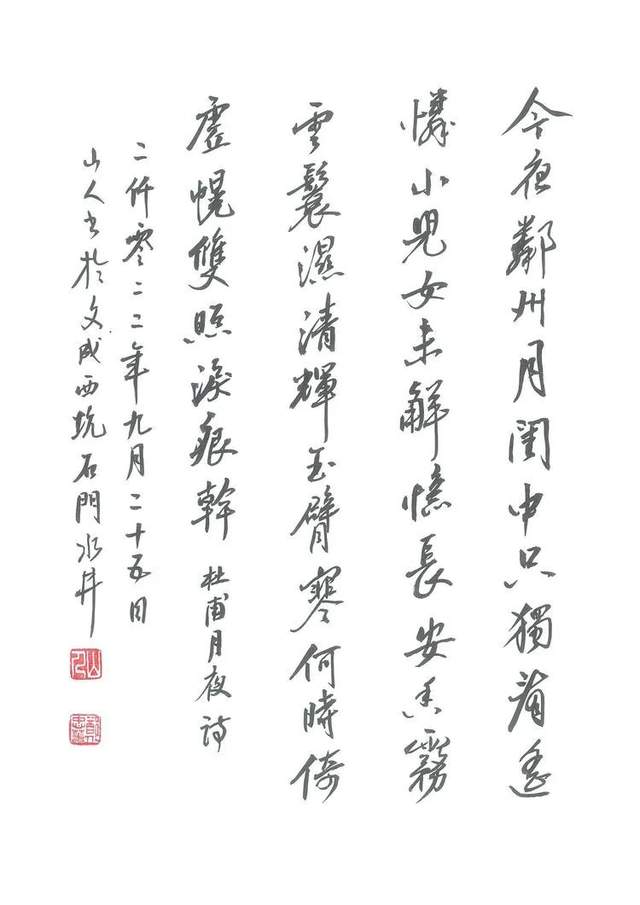 今夜鄜州月閨中只獨看遙
憐小兒女未解憶長安香霧
雲鬟濕清輝玉臂寒何時倚
虛幌雙照淚痕幹 杜甫月夜詩
二仟零二二年九月二十五日
山人書於文成西坑石門水井
山人